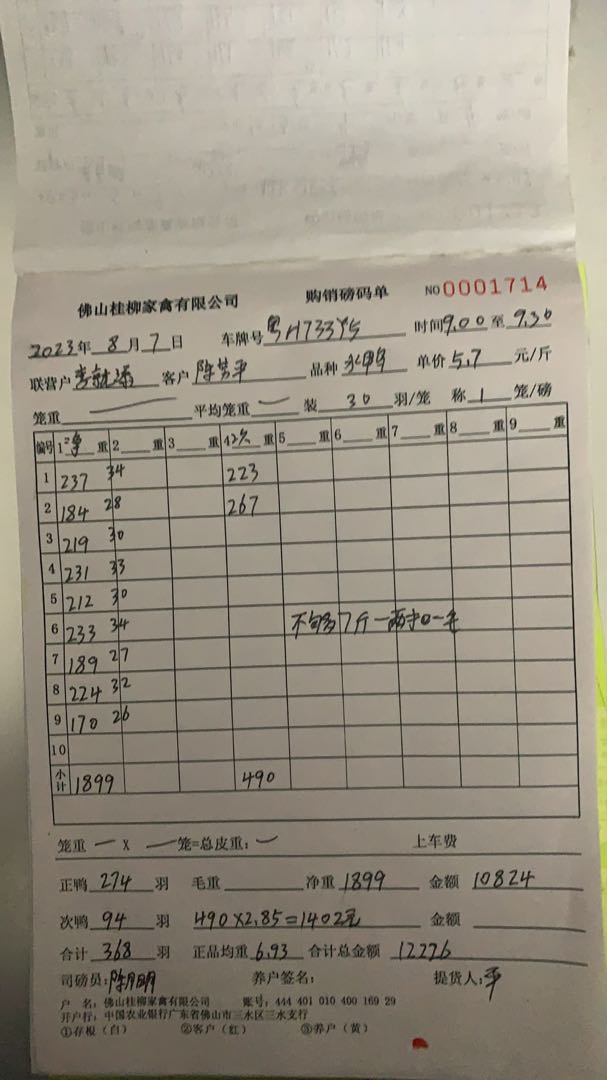 佛山桂柳家禽有限公司 购销磅码单 NO 0001714
2023年 8月 7日 车牌号 粤H733 时间 9.00 至 9.30
联营户 客户 陈芳平 品种 水鸭 单价 5.7 元/斤
笼重 — 平均笼重 — 装 30 羽/笼 称 1 笼/磅
编号 1净 重 2 重 3 重 4次 重 5 重 6 重 7 重 8 重 9 重
1 237 34 223
2 184 28 267
3 219 30
4 231 33
5 212 30
6 233 34 不够7斤一两扣一毛
7 189 27
8 224 32
9 170 26
10
小计 1899 490
笼重 — X — 笼=总皮重: — 上车费
正鸭 274 羽 毛重 净重 1899 金额 10824
次鸭 94 羽 490×2.85=1402元 金额
合计 368 羽 正品均重 6.93 合计总金额 12226
司磅员: 陈月明 养户签名: 提货人: 平
户 名: 佛山桂柳家禽有限公司 账号: 444 401 010 400 169 29
开户行: 中国农业银行广东省佛山市三水区三水支行
①存根（白） ②客户（红） ③养户（黄）